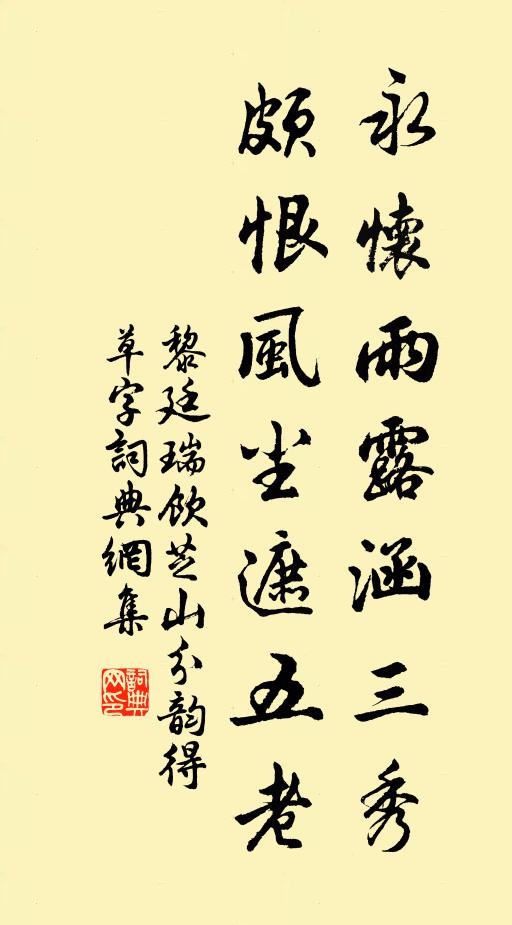 永懷雨露涵三秀
頗恨風尘遮五老
黎廷瑞飲芝山分韵得
草字詞典網集
詞典网印